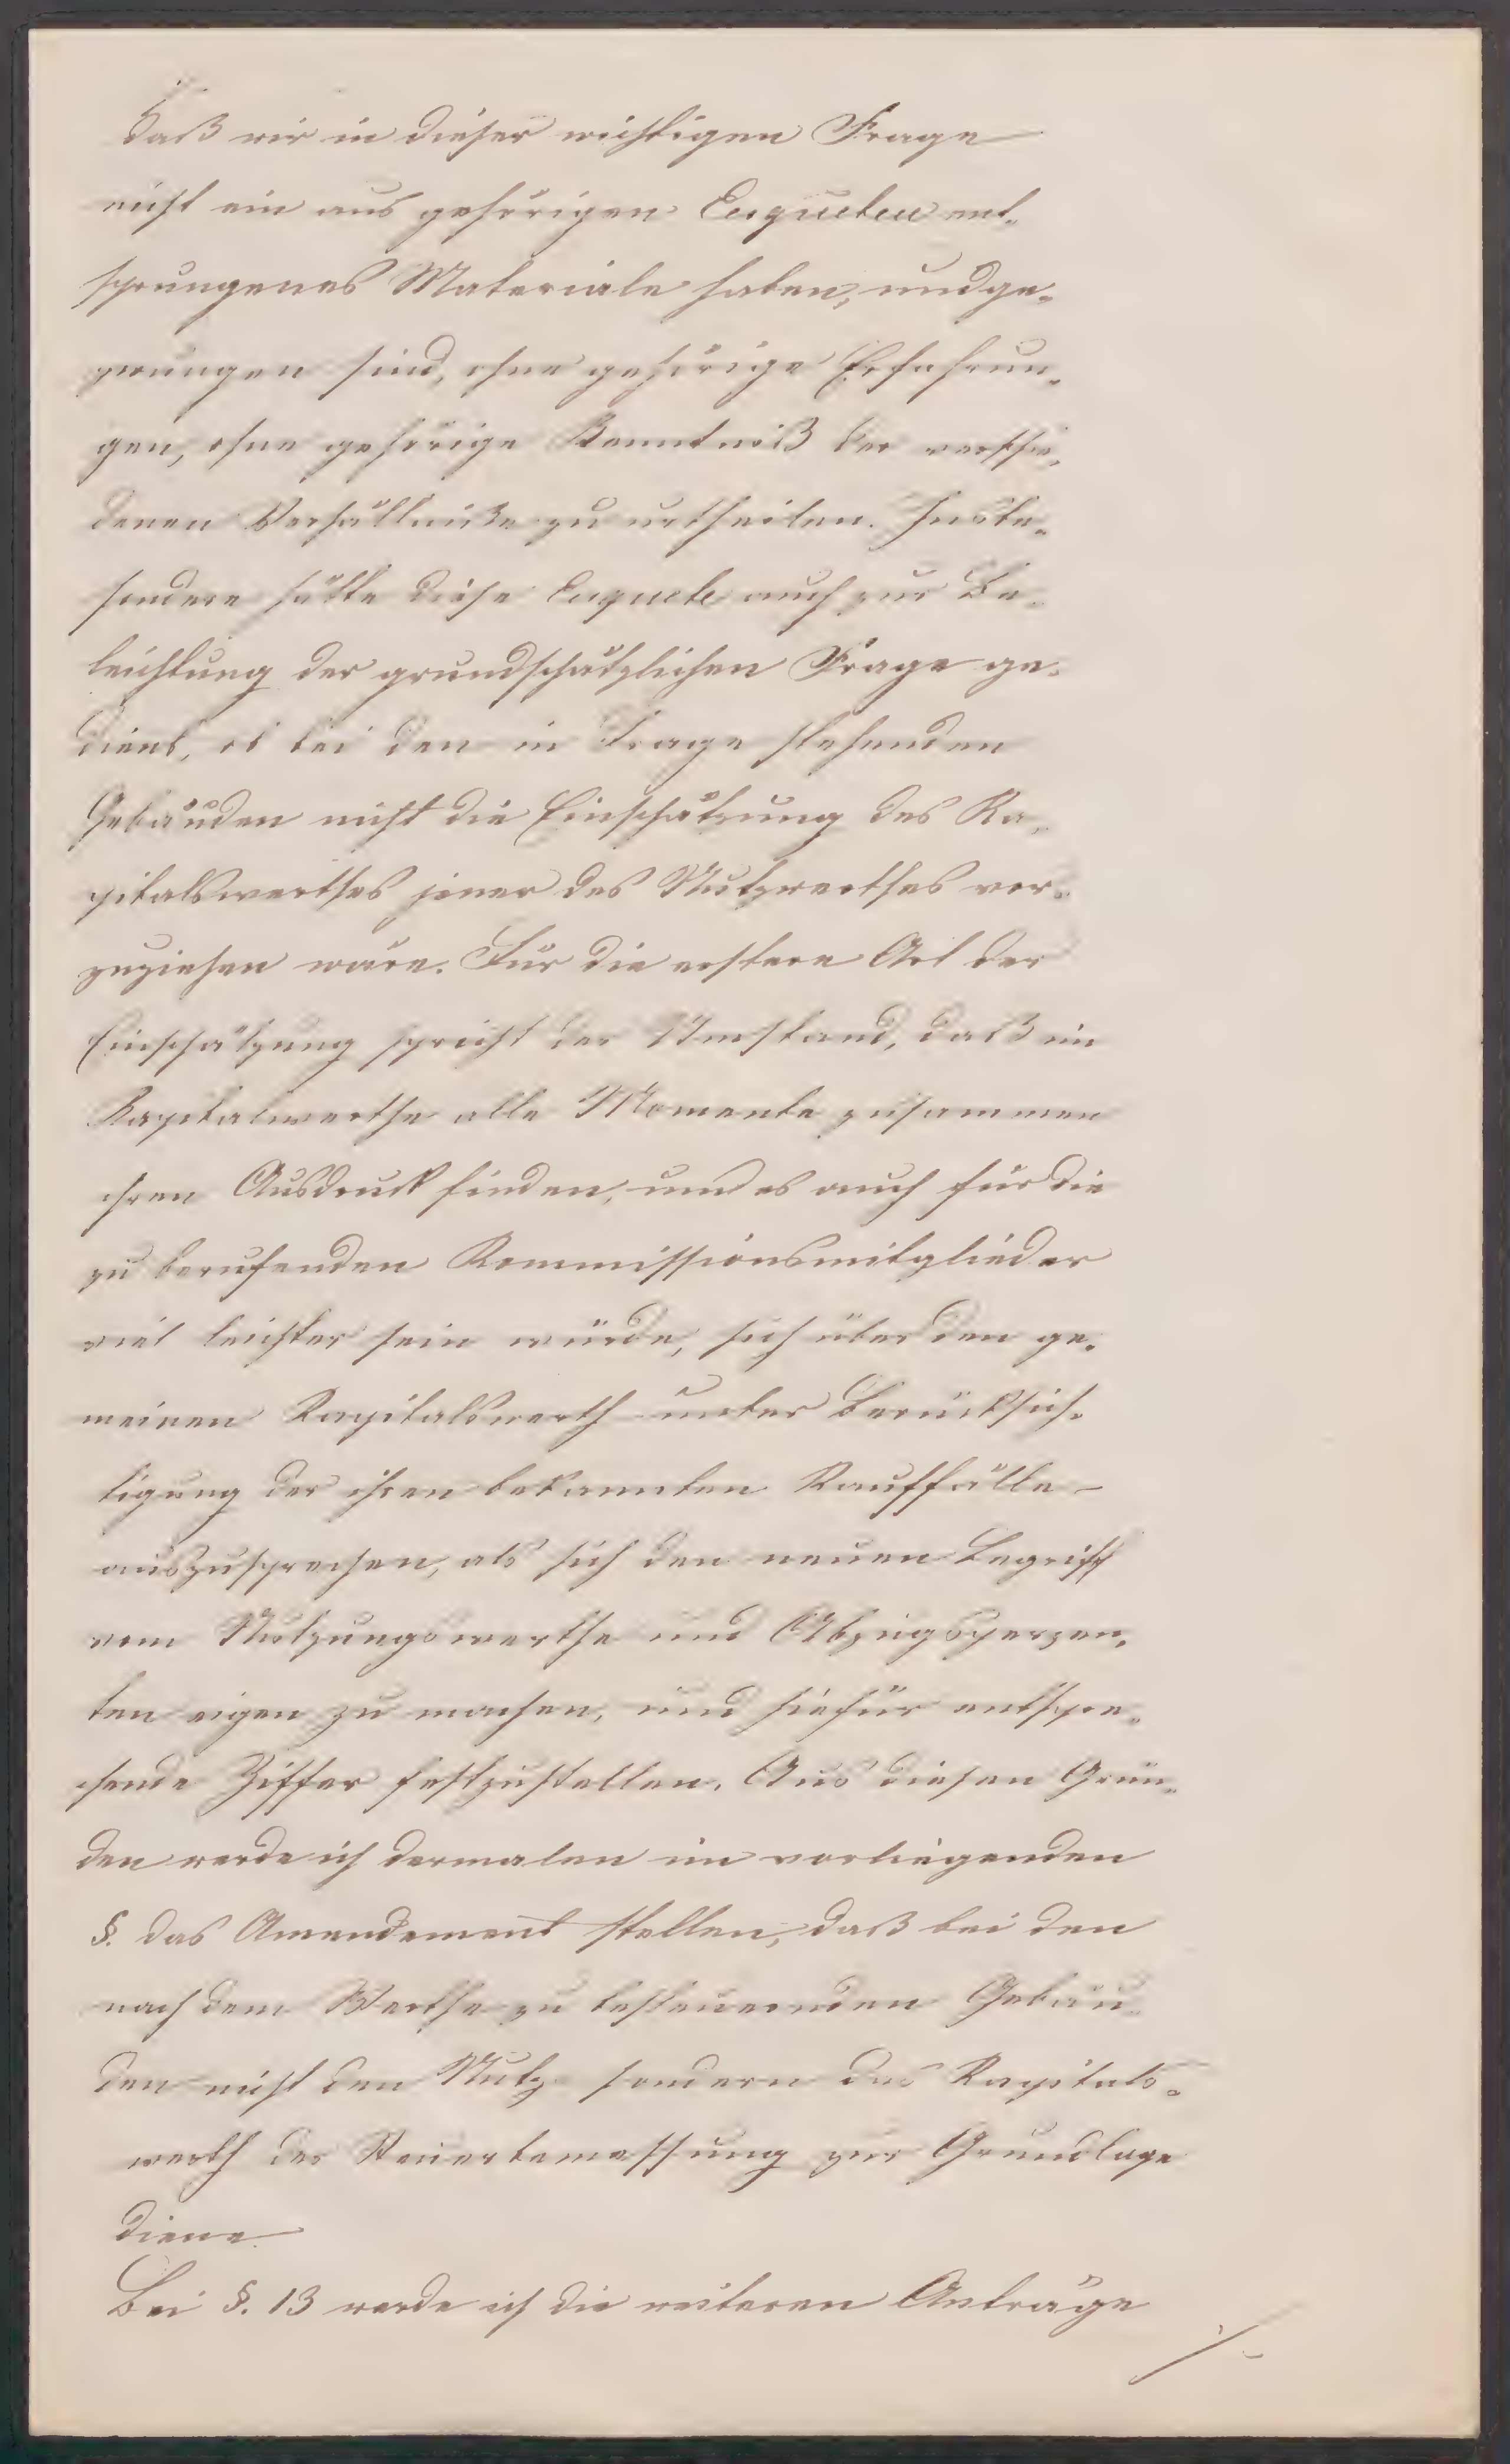 daß wir in dieser wichtigen Frage
nicht ein aus gehörigen Enqueten ent-
sprungenes Materiale haben, und ge-
zwungen sind, ohne gehörige Erfahrun-
gen, ohne gehörige Kenntniß der verschie-
denen Verhältniße zu urtheilen. Insbe-
sondere hätte diese Enquete auch zur Be-
leuchtung der grundschätzlichen Frage ge-
dient, ob bei den in Frage stehenden
Gebäuden nicht die Einschätzung des Ka-
pitalswerthes jener des Nutzwerthes vor-
zuziehen wäre. Für die erstere Art der
Einschätzung spricht der Umstand, daß im
Kapitalwerthe alle Momente zusammen
ihren Ausdruck finden, und es auch für die
zu berufenden Kommissionsmitglieder
viel leichter sein würde, sich über den ge-
meinen Kapitalswerth unter Berücksich-
tigung der ihren bekannten Kauffälle -
auszusprechen, als sich den neuen Begriff
vom Nutzungswerthe und Abzugsperzen-
ten eigen zu machen, und hiefür entspre-
chende Ziffer festzustellen. Aus diesen Grün-
den werde ich dermalen im vorliegenden
§. das Amendement stellen, daß bei den
nach dem Werthe zu besteuernden Gebäu-
den nicht den Nutz- sondern das Kapitals-
werth der Steuerbemessung zur Grundlage
diene.
Bei §. 13 werde ich die weiteren Anträge
./.